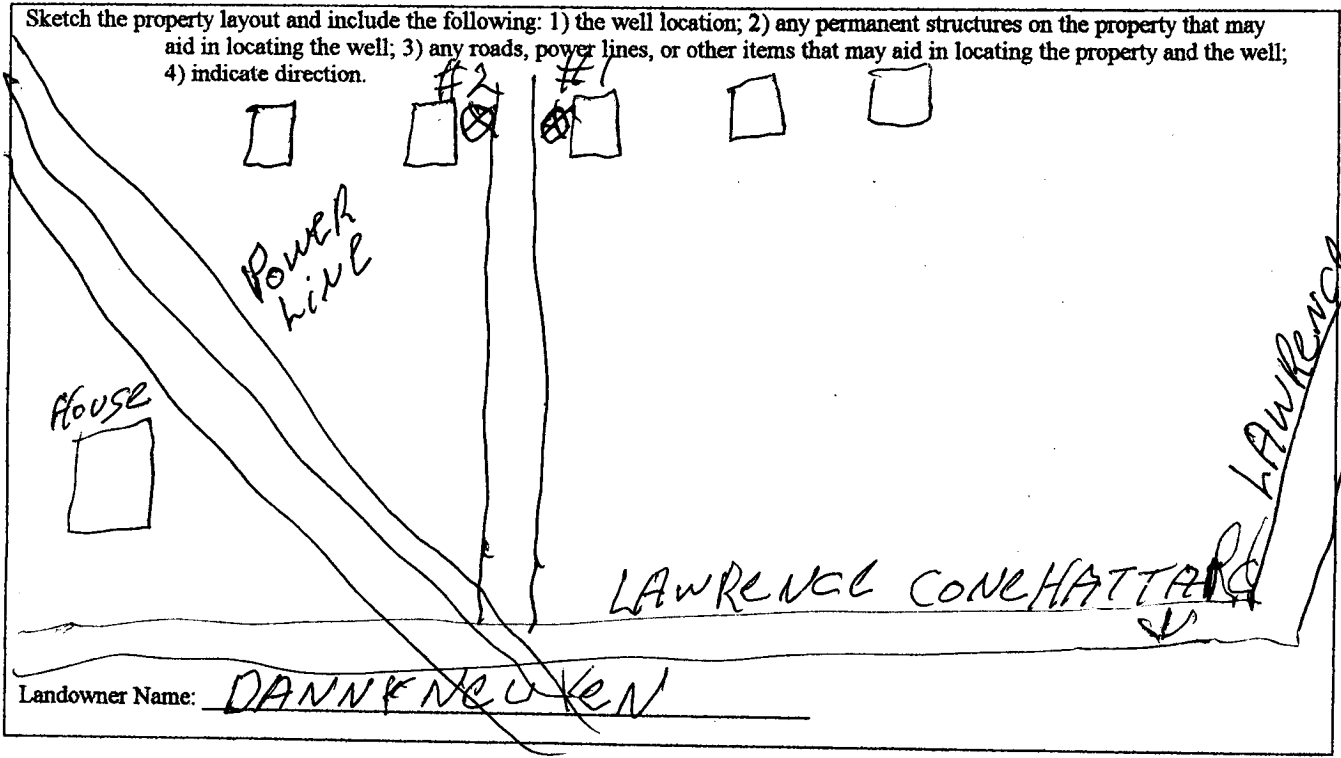 Sketch the property layout and include the following: 1) the well location; 2) any permanent structures on the property that may
aid in locating the well; 3) any roads, power lines, or other items that may aid in locating the property and the well;
4) indicate direction.
#2 #1
Power
Line
House
LAWRENCE
LAWRENCE CONEHATTA Rd
Landowner Name: DANNY